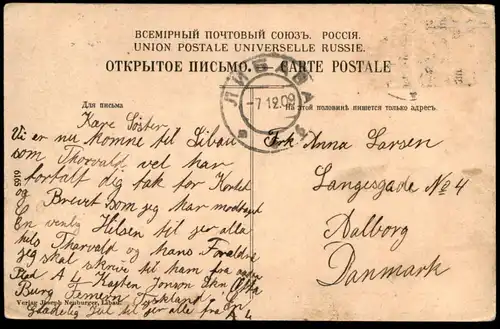 ВСЕМІРНЫЙ ПОЧТОВЫЙ СОЮЗЪ. РОССІЯ.
UNION POSTALE UNIVERSELLE RUSSIE.
ОТКРЫТОЕ ПИСЬМО. — CARTE POSTALE
ЛИБАВА
-7 12 09
Для письма
На этой половинѣ пишется только адресъ.
Kare Söster
Vi er nu komne til Libau
som Thorvald vel har
fortalt dig tak for Kortet
og Brevet som jeg har modtaget
En venlig Hilsen til jer alle
hils Thorvald og hans Forældre
jeg skal skrive til ham fra
Kasten Jonson
Burg Femern Tyskland En
Glædelig Jul til jer alle fra
Frk Anna Larsen
Langesgade No 4
Aalborg
Danmark
6199
Verlag Joseph Neuburger, Libau.